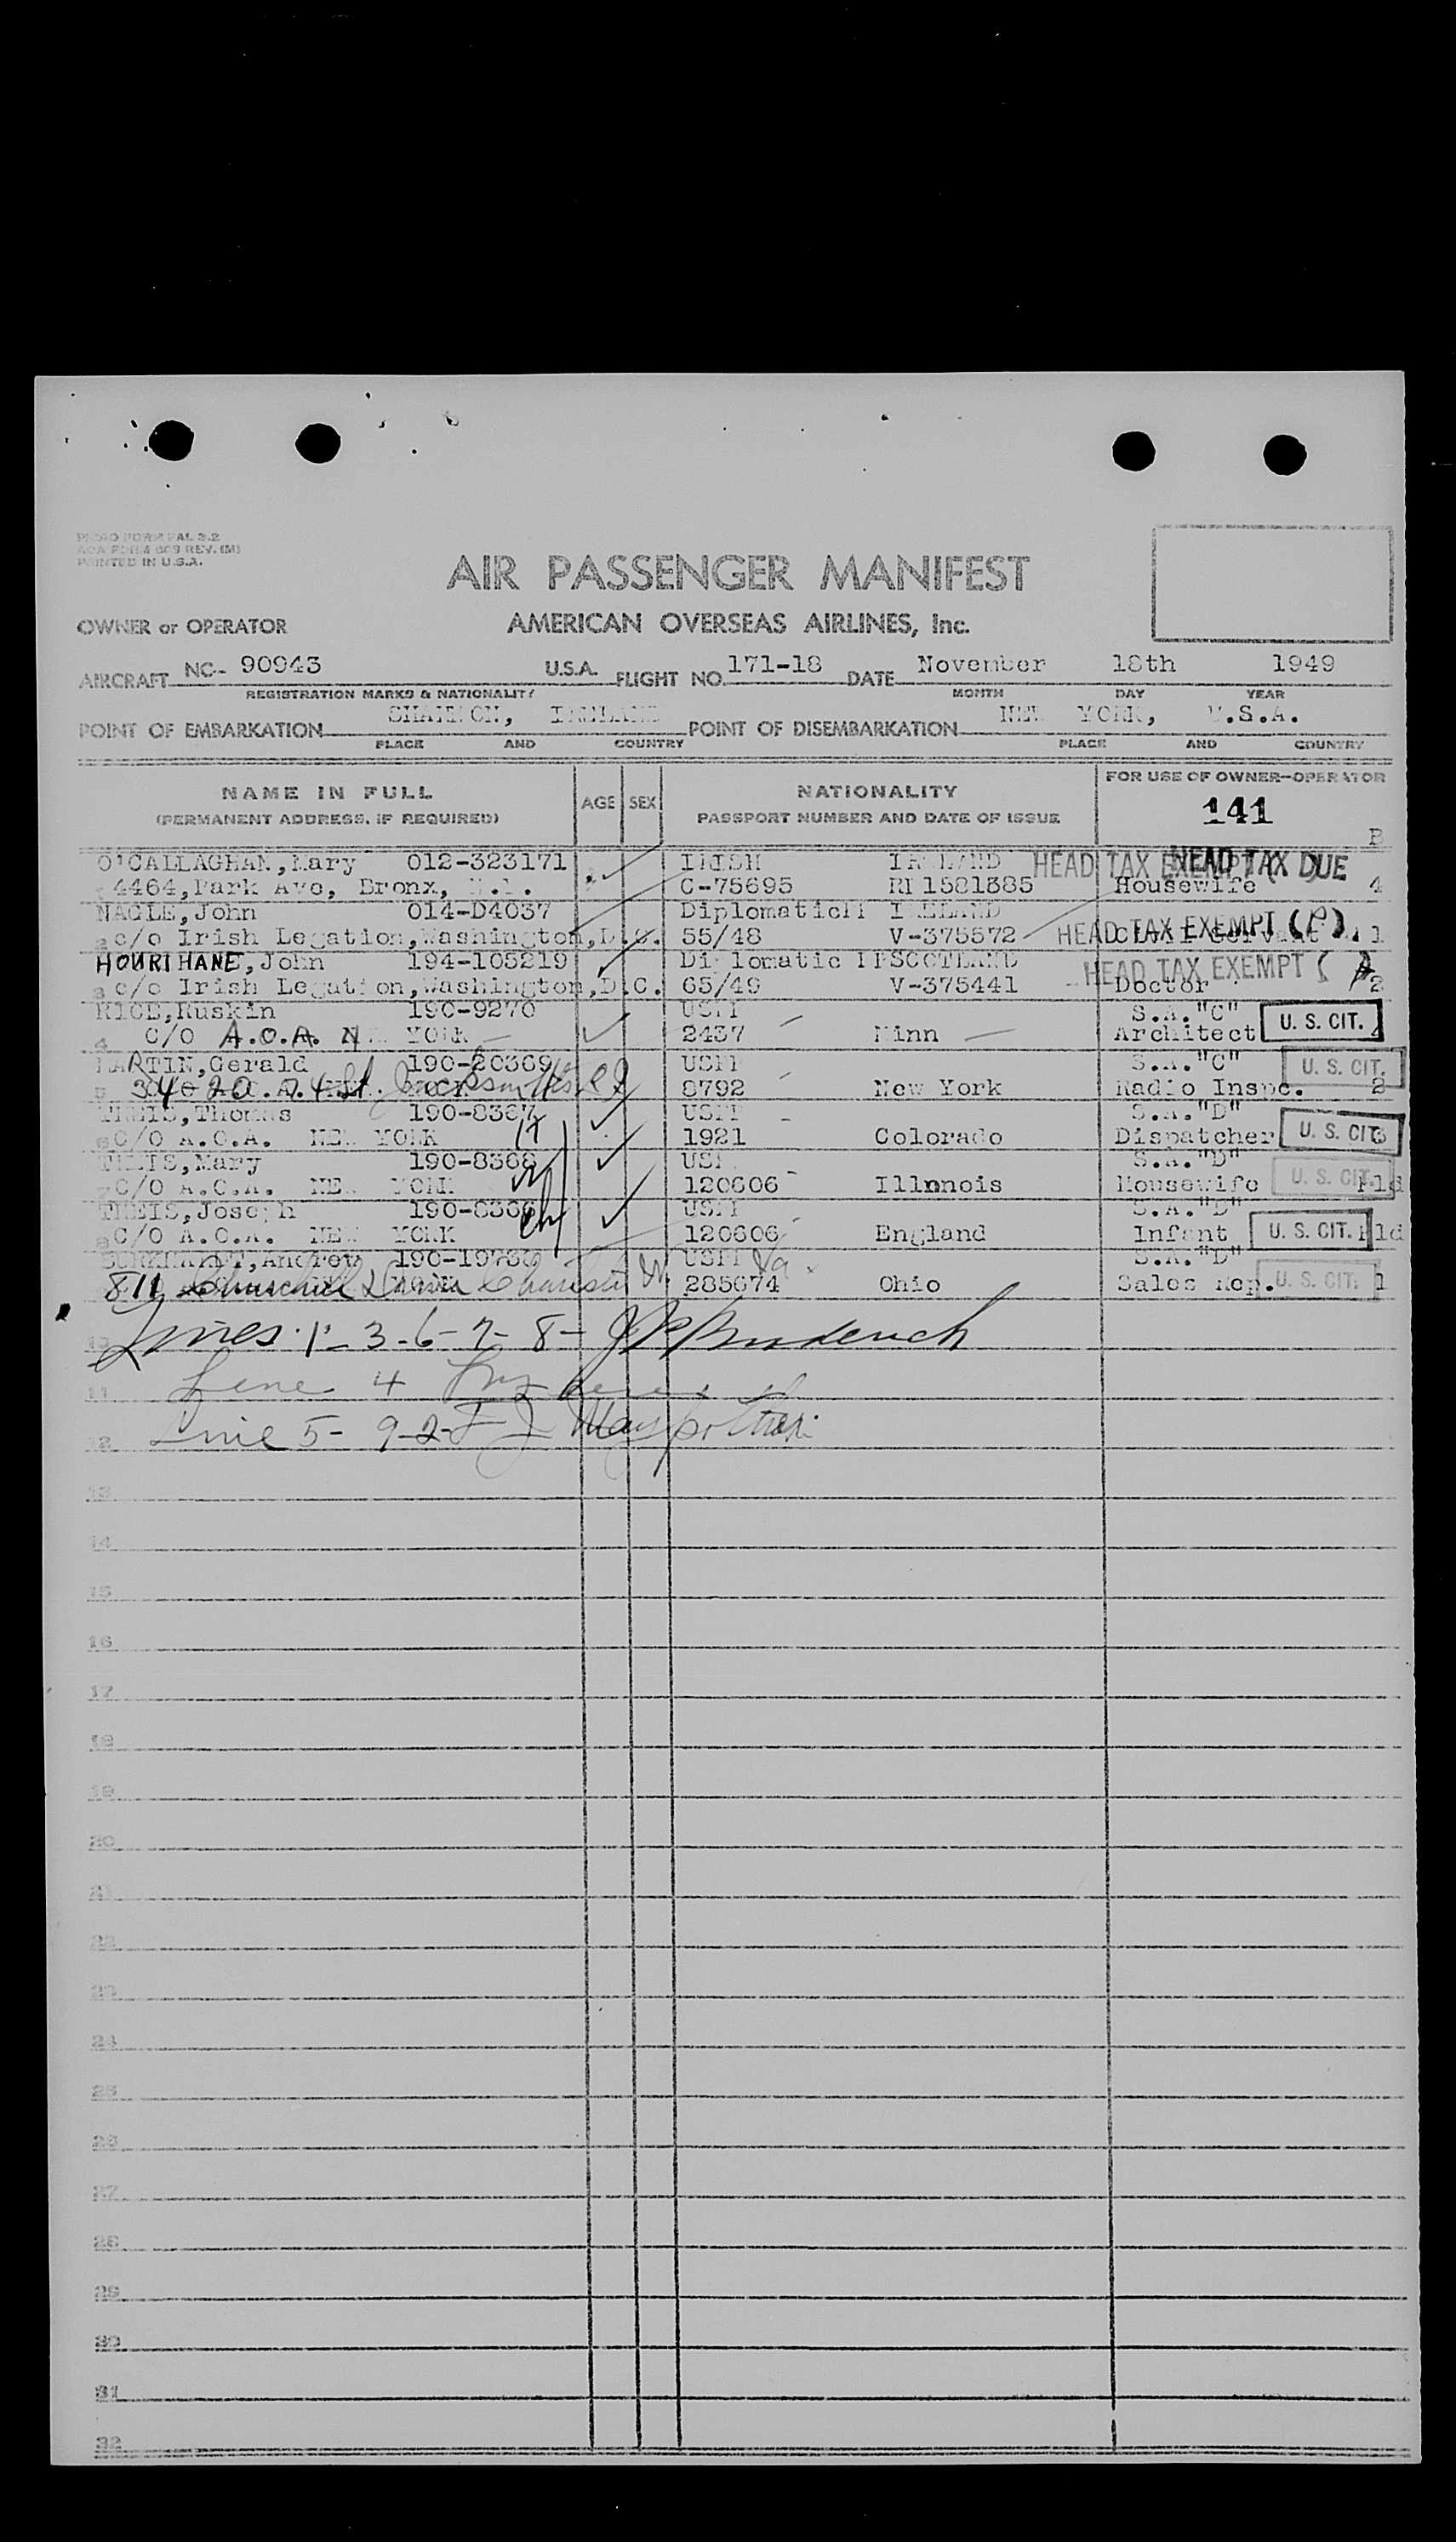 PICAO FORM PAL 3.2
AOA FORM 609 REV. (M)
PRINTED IN U.S.A.
AIR PASSENGER MANIFEST
OWNER or OPERATOR AMERICAN OVERSEAS AIRLINES, Inc.
AIRCRAFT NC- 90943 U.S.A. FLIGHT NO. 171-18 DATE November 18th 1949
REGISTRATION MARKS & NATIONALITY MONTH DAY YEAR
POINT OF EMBARKATION SHANNON, IRELAND POINT OF DISEMBARKATION NEW YORK, U.S.A.
PLACE AND COUNTRY PLACE AND COUNTRY
NAME IN FULL AGE SEX NATIONALITY FOR USE OF OWNER-OPERATOR
(PERMANENT ADDRESS, IF REQUIRED) PASSPORT NUMBER AND DATE OF ISSUE 141
B
O'CALLAGHAN, Mary 012-323171 IRISH IRELAND HEAD TAX EXEMPT HEAD TAX DUE
4464, Park Ave, Bronx, N.Y. C-75695 RP 1581385 Housewife 4
NAGLE, John 014-D4037 Diplomatic IRELAND
2 c/o Irish Legation, Washington, D.C. 55/48 V-375572 HEAD TAX EXEMPT (P) 1
HOURIHANE, John 194-105219 Diplomatic SCOTLAND HEAD TAX EXEMPT (
3 c/o Irish Legation, Washington, D.C. 65/49 V-375441 Doctor 2
RICE, Ruskin 190-9270 USPP S.A. "C"
4 C/O A.O.A. NEW YORK 2437 Minn Architect U. S. CIT.
MARTIN, Gerald 190-20369 USPP S.A. "C" U. S. CIT.
5 34-20 74 St. Jackson Hts 8792 New York Radio Inspc. 2
THEIS, Thomas 190-8367 USPP S.A. "D"
6 C/O A.O.A. NEW YORK 1921 Colorado Dispatcher U. S. CIT.
THEIS, Mary 190-8368 USPP S.A. "D"
7 C/O A.O.A. NEW YORK 120606 Illnnois Housewife U. S. CIT.
THEIS, Joseph 190-8366 USPP S.A. "D"
8 C/O A.O.A. NEW YORK 120606 England Infant U. S. CIT.
BURKHARDT, Andrew USPP S.A. "D"
811 285674 Ohio Sales Rep. U. S. CIT. 1
Lines 1-3-6-7-8-
Line 4
11
Line 5-9-2-
12
13
14
15
16
17
18
19
20
21
22
23
24
25
26
27
28
29
30
31
32